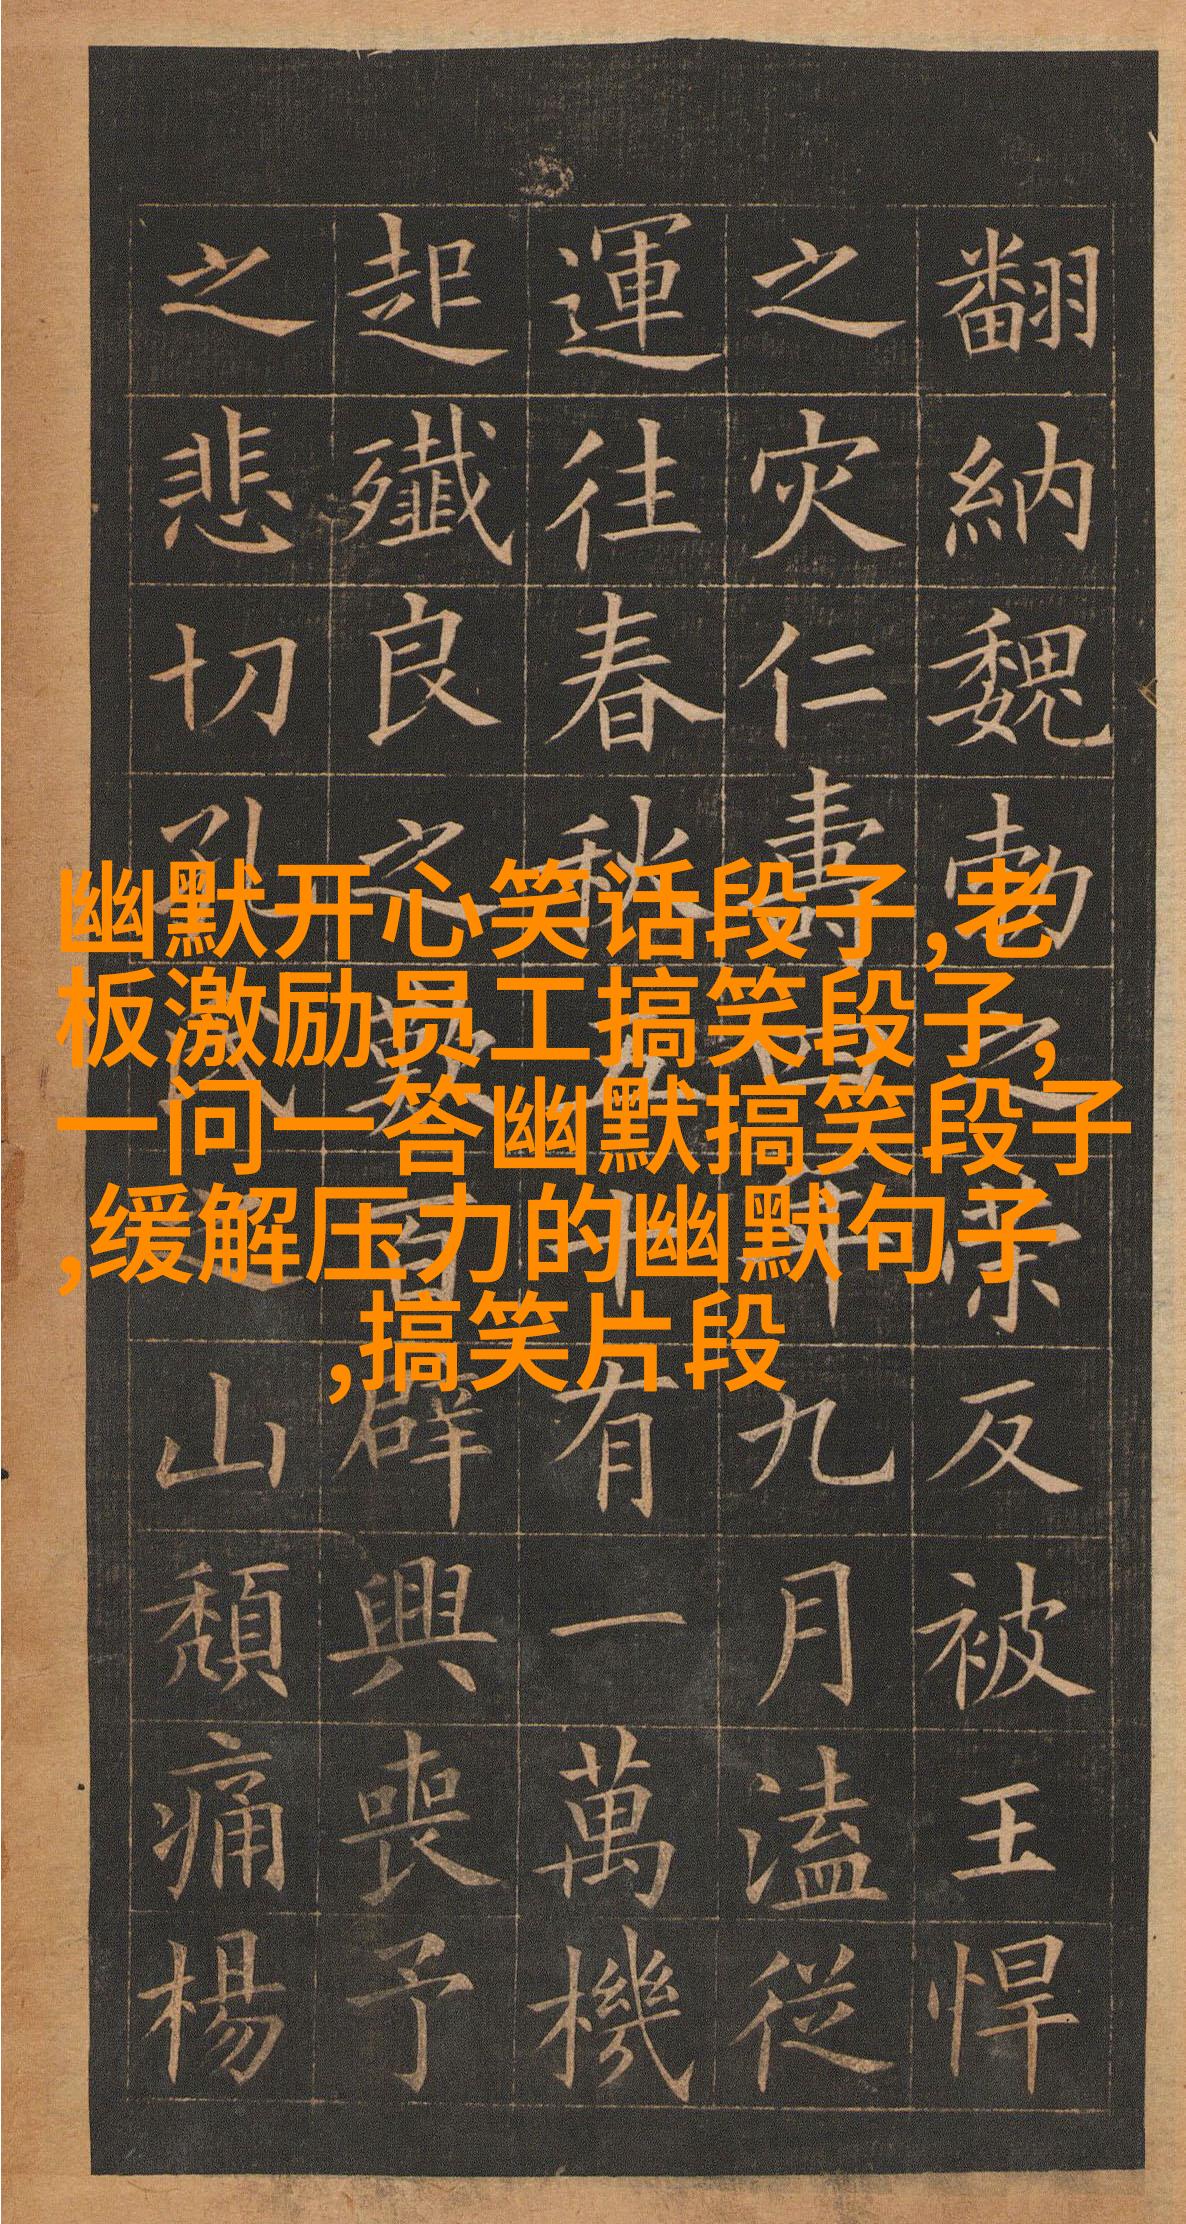 翻納魏勃之反被王悍
之灾仁壽四年九月溘從
運往春秋五十有一萬機
起殲良之歎百辟興喪予
之悲切孔氏之山頹痛楊
幽默开心笑话段子,老
板激励员工搞笑段子,
一问一答幽默搞笑段子
,缓解压力的幽默句子
,搞笑片段